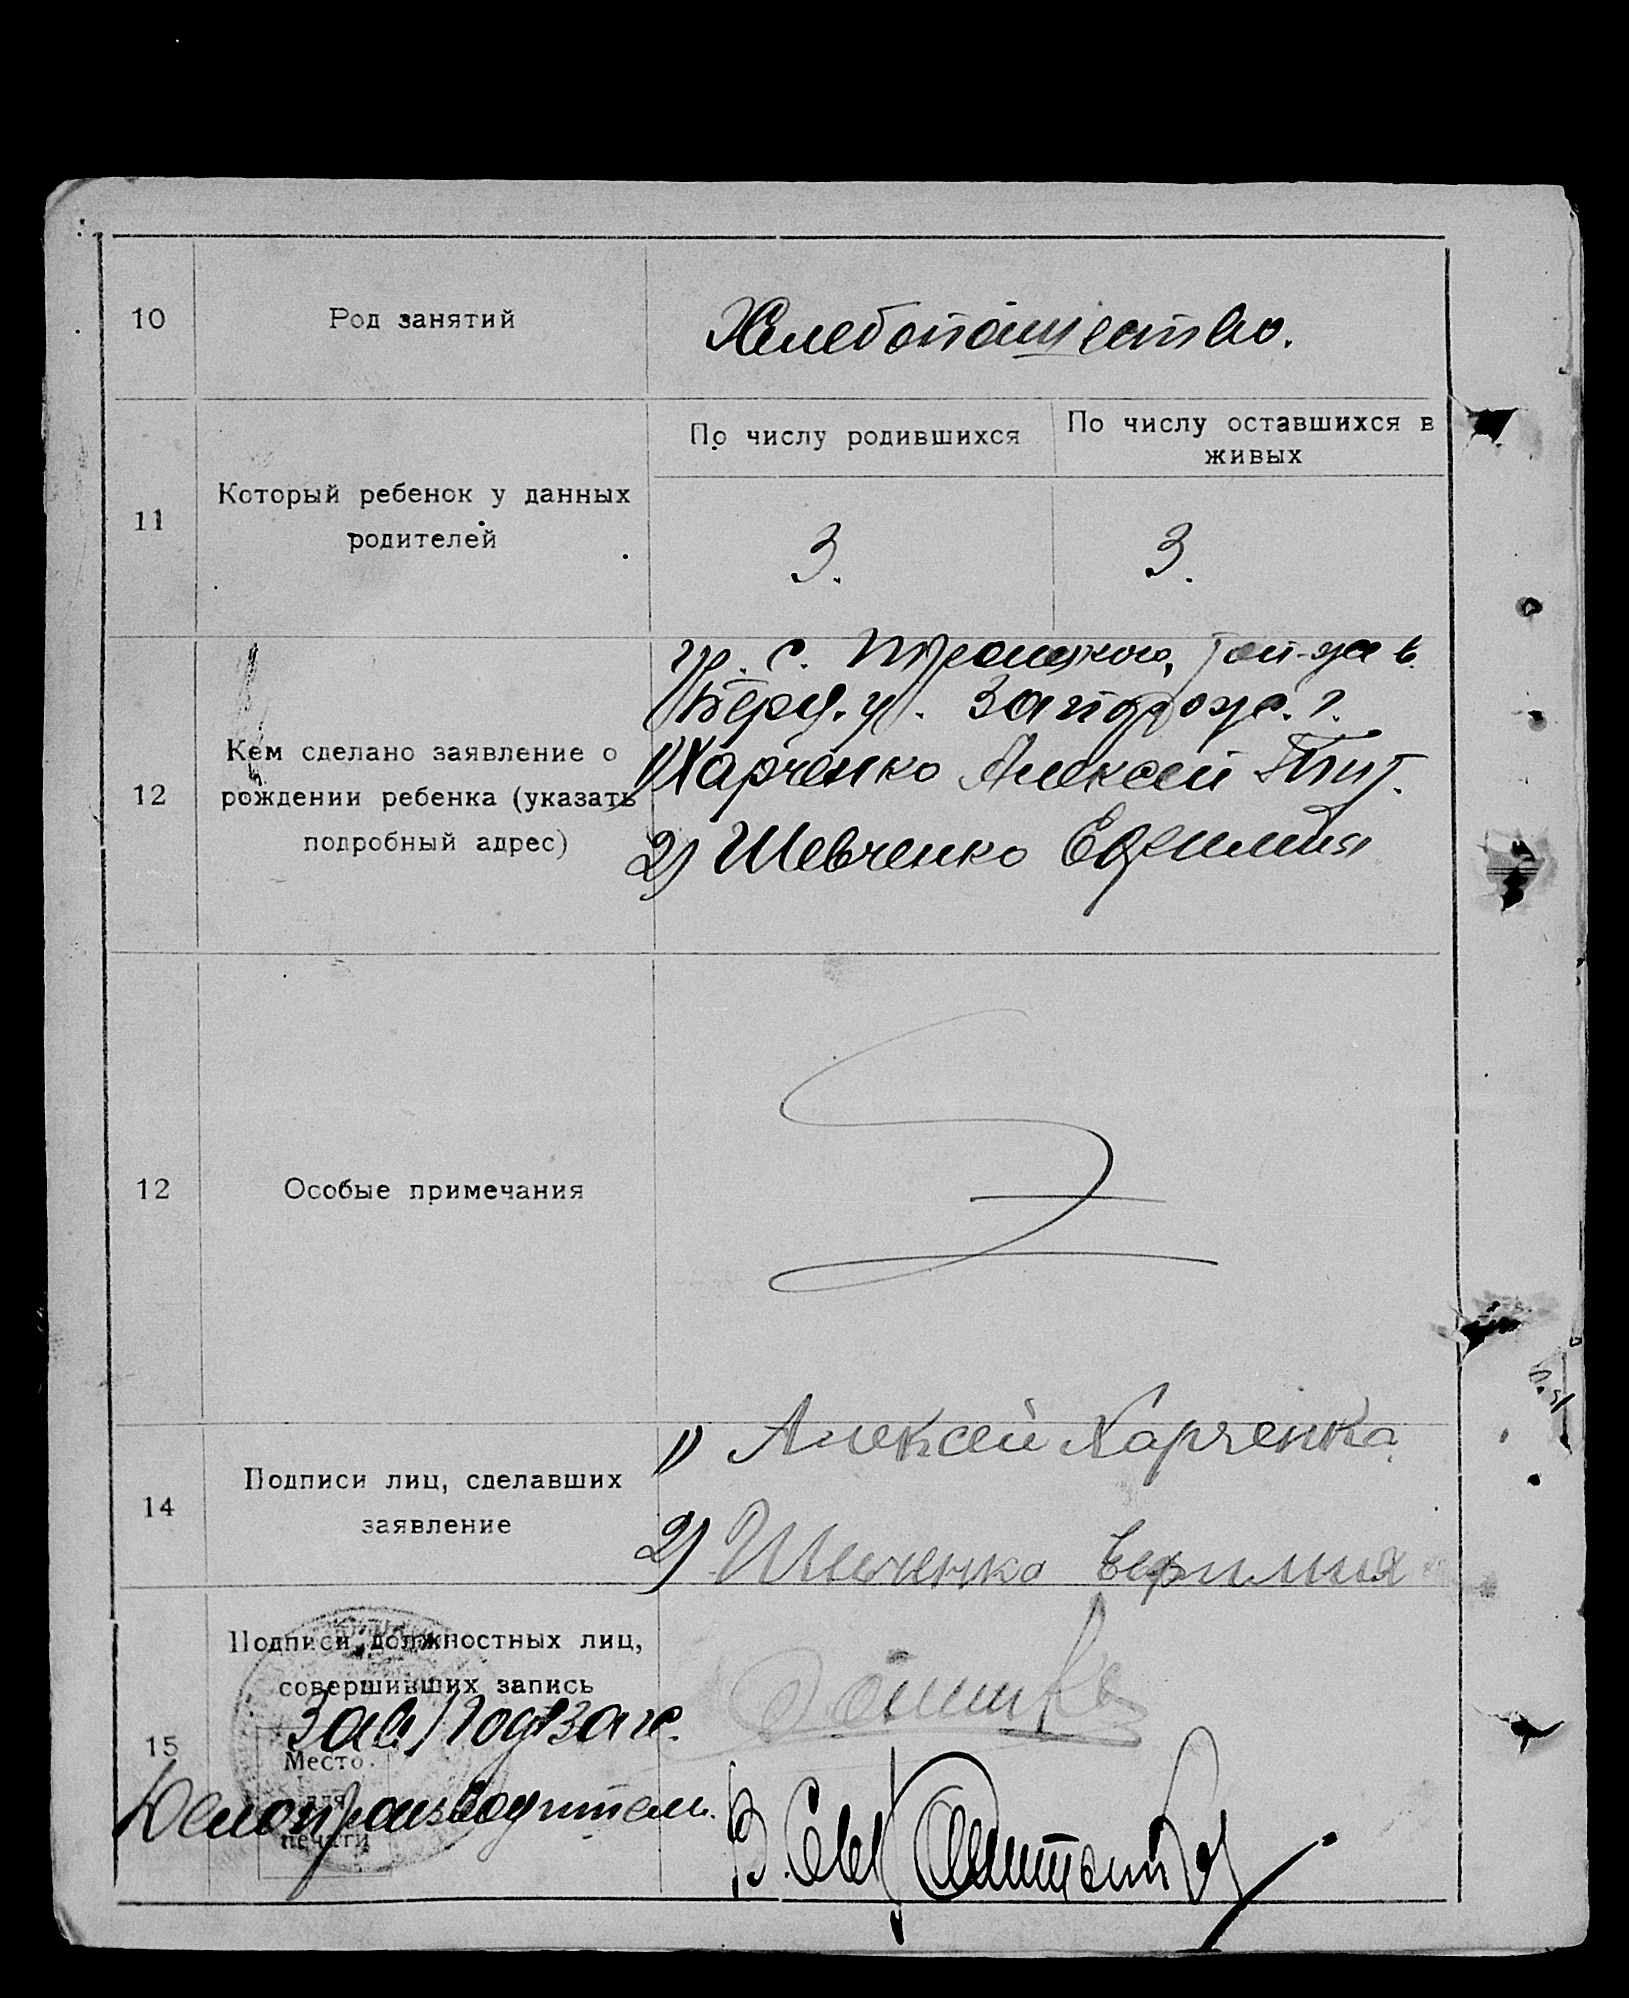 10 Род занятий Хлебопашество.
11 Который ребенок у данных родителей
По числу родившихся
По числу оставшихся в живых
3. 3.
12 Кем сделано заявление о рождении ребенка (указать подробный адрес)
гр. с. Троицкого, в.
Берд. у. Запорож. г.
1) Харченко Алексей Тит.
2) Шевченко Ефимия
12 Особые примечания
14 Подписи лиц, сделавших заявление
1) Алексей Харченка
2) Шевченко Ефимия
15 Подписи должностных лиц, совершивших запись
Зав. Подзагс.
Место для печати
Делопроизводитель.